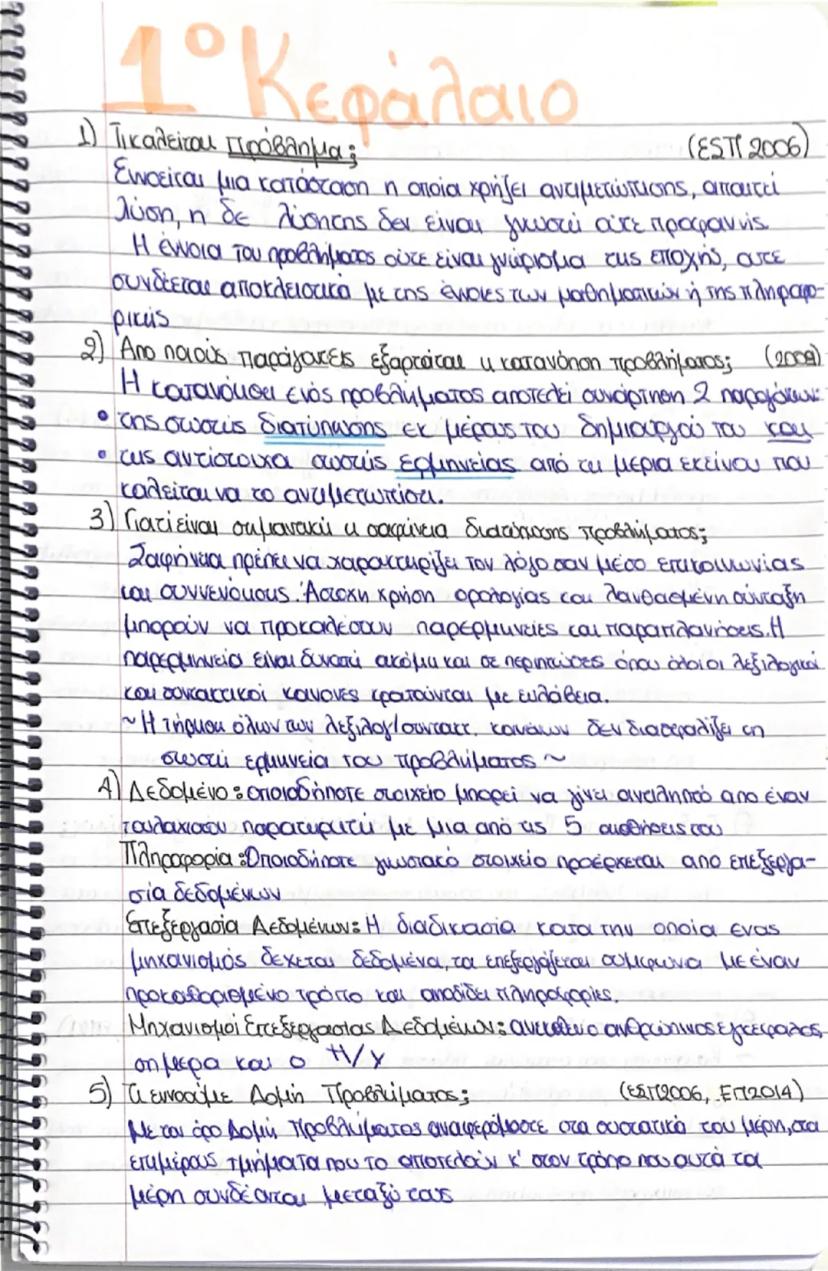 1º Κεφάλαιο
1) Τι καλείται πρόβλημα; (ΕΣΠ 2006)
Εννοείται μια κατάσταση η οποία χρήζει αντιμετώπισης, απαιτεί
λύση, η δε λύση της δεν είναι γνωστή ούτε προφανής.
Η έννοια του προβλήματος ούτε είναι γνώρισμα της εποχής, ούτε
συνδέεται αποκλειστικά με της έννοιες των μαθηματικών ή της πληροφο-
ρικής
2) Απο ποιούς παράγοντες εξαρτάται η κατανόηση προβλήματος; (2008)
Η κατανόηση ενός προβλήματος αποτελεί συνάρτηση 2 παραγόντων:
• της σωστής διατύπωσης εκ μέρους του δημιουργού του και
• της αντίστοιχα σωστής ερμηνείας από τη μεριά εκείνου που
καλείται να το αντιμετωπίσει.
3) Γιατί είναι σημαντική η σαφήνεια διατύπωσης προβλήματος;
Σαφήνεια πρέπει να χαρακτηρίζει τον λόγο σαν μέσο επικοινωνίας
και συννενόησης. Άστοχη χρήση ορολογίας και λανθασμένη σύνταξη
μπορούν να προκαλέσουν παρερμηνείες και παραπλανήσεις. Η
παρερμηνεία είναι δυνατή ακόμα και σε περιπτώσεις όπου όλοι οι λεξιλογικοί
και συντακτικοί κανόνες κρατούνται με ευλάβεια.
~ Η τήρηση όλων των λεξιλογ/συντακτ. κανόνων δεν διασφαλίζει τη
σωστή ερμηνεία του προβλήματος ~
4) Δεδομένο: οποιοδήποτε στοιχείο μπορεί να γίνει αντιληπτό απο έναν
τουλάχιστον παρατηρητή με μια από τις 5 αισθήσεις του
Πληροφορία: Οποιοδήποτε γνωστικό στοιχείο προέρχεται απο επεξεργα-
σία δεδομένων
Επεξεργασία Δεδομένων: Η διαδικασία κατα την οποία ένας
μηχανισμός δέχεται δεδομένα, τα επεξεργάζεται σύμφωνα με έναν
προκαθορισμένο τρόπο και αποδίδει πληροφορίες.
Μηχανισμοί Επεξεργασίας Δεδομένων: ανθρώπινος εγκέφαλος,
σημερα και ο Η/Υ
5) Τι εννοούμε Δομή Προβλήματος; (ΕΣΠ2006, ΕΠ2014)
Με τον όρο Δομή Προβλήματος αναφερόμαστε στα συστατικά του μέρη, στα
επιμέρους τμήματα που το αποτελούν κ' στον τρόπο που αυτά τα
μέρη συνδέονται μεταξύ τους